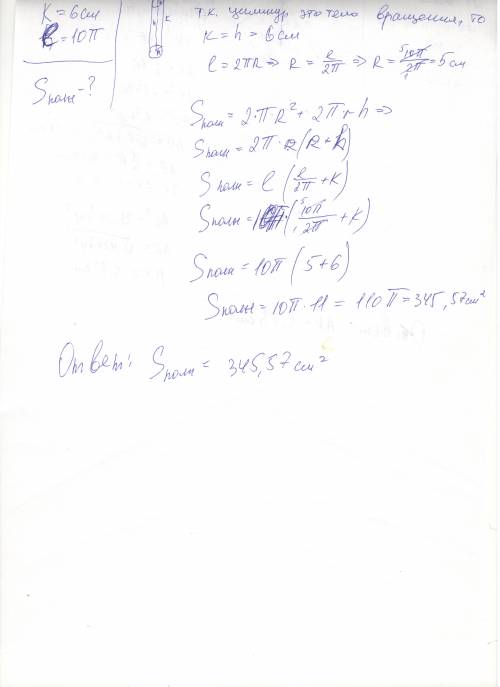 K = 6см
ℓ = 10π
Sполн - ?
K
т.к. цилиндр это тело вращения, то
K = h = 6см
ℓ = 2πR ⇒ R = ℓ/2π ⇒ R = 10π/2π = 5 см
Sполн = 2·π·R² + 2πrh ⇒
Sполн = 2π·R(R+h)
Sполн = ℓ(ℓ/2π + K)
Sполн = 10π·(10π/2π + K)
Sполн = 10π(5+6)
Sполн = 10π·11 = 110π = 345,57см²
Ответ: Sполн = 345,57см²